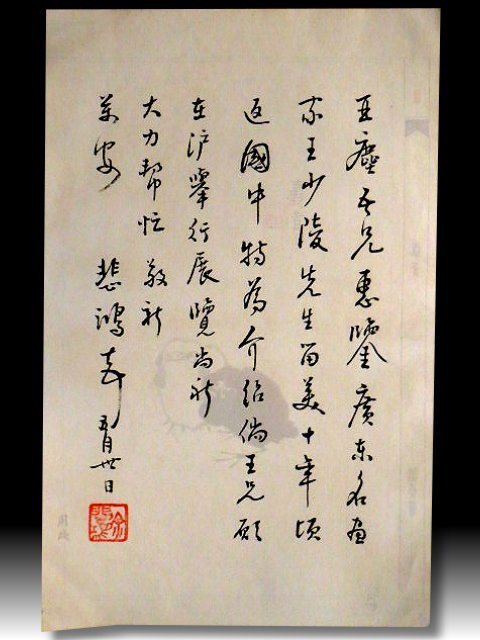 亞塵吾兄惠鑒廣东名画
家王少陵先生留美十年頃
返國中特為介紹倘王兄願
在沪舉行展覽尚祈
大力幫忙敬祈
安 悲鴻 月卅日